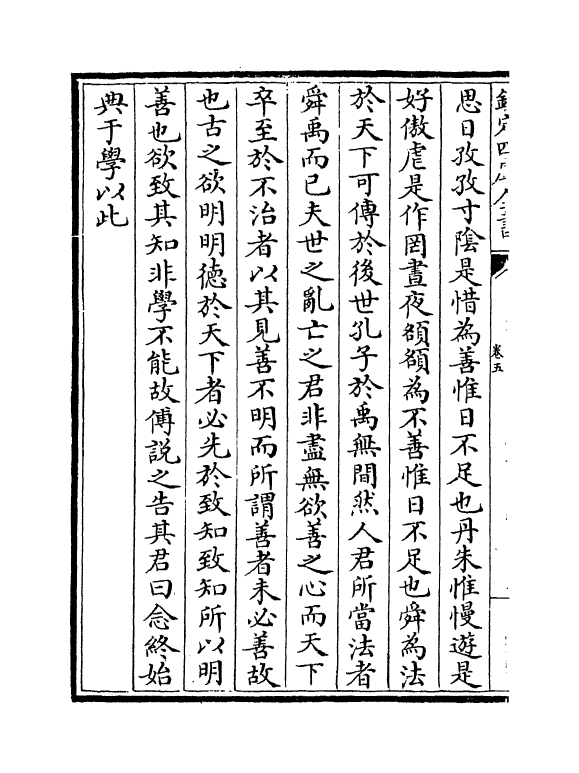 欽定四庫全書
卷五
思日孜孜寸陰是惜為善惟日不足也丹朱惟慢遊是
好傲虐是作罔晝夜頟頟為不善惟日不足也舜為法
於天下可傳於後世孔子於禹無間然人君所當法者
舜禹而已夫世之亂亡之君非盡無欲善之心而天下
卒至於不治者以其見善不明而所謂善者未必善故
也古之欲明明德於天下者必先於致知致知所以明
善也欲致其知非學不能故傅説之告其君曰念終始
典于學以此